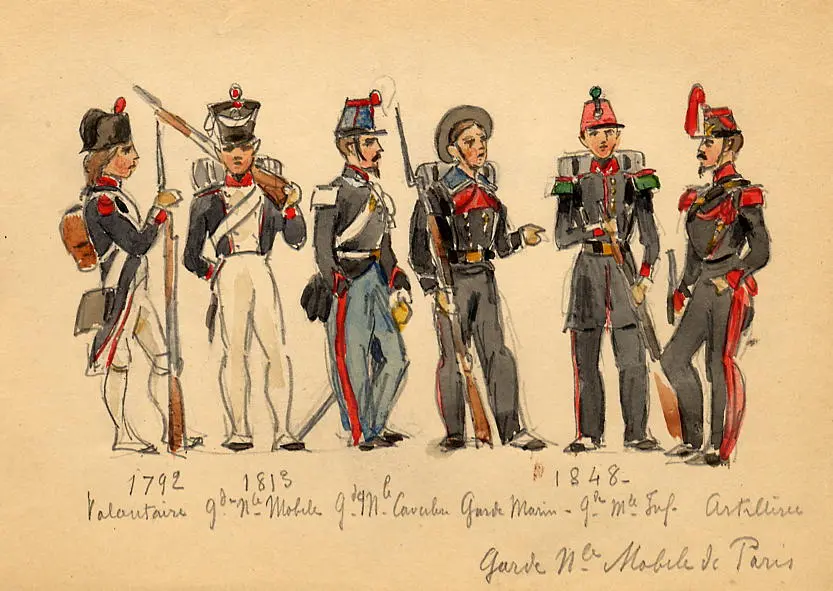 1792 1813 1848-
Volontaire gde Nle Mobile gde Nle Cavalerie Garde Marin - gde Mle Inf. Artillerie
Garde Nle Mobile de Paris